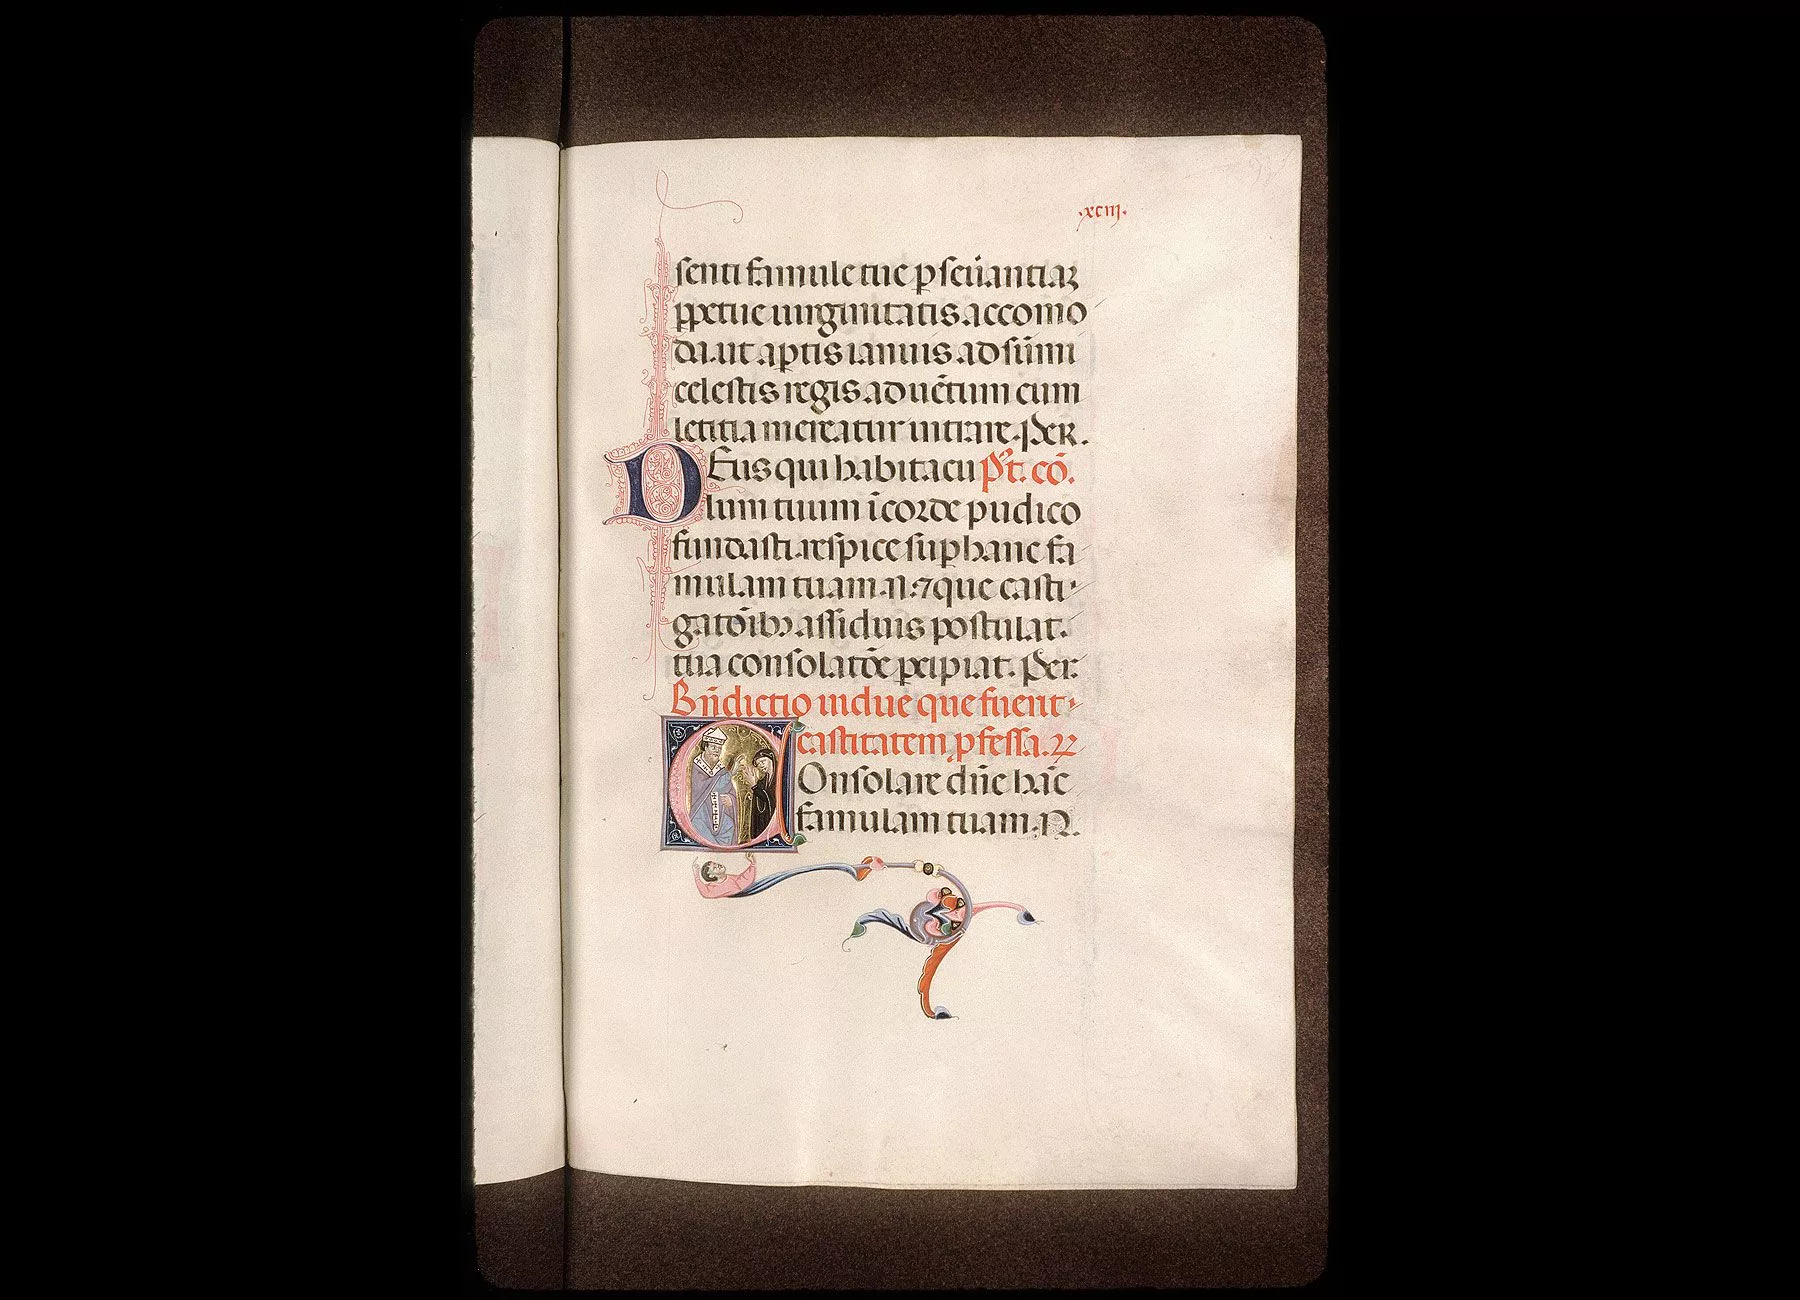 .xciij.
senti famule tue ꝑseūantiaꝝ
ꝑpetue uirginitatis accomo
da. ut aꝑtis ianuis ad sūmi
celestis regis aduētum cum
letitia mereatur intrare. Per.
DEus qui habitacu P̄t. cō.
lum tuum ī corde pudico
fundasti. respice suꝑ hanc fa
mulam tuam .N. ⁊ que casti
gatōibꝫ assiduis postulat.
tua consolatōe ꝑcipiat. Per.
Bn̄dictio uidue que fuerit
castitatem ꝓfessa. ℞
COnsolare dn̄e hāc
famulam tuam. N.